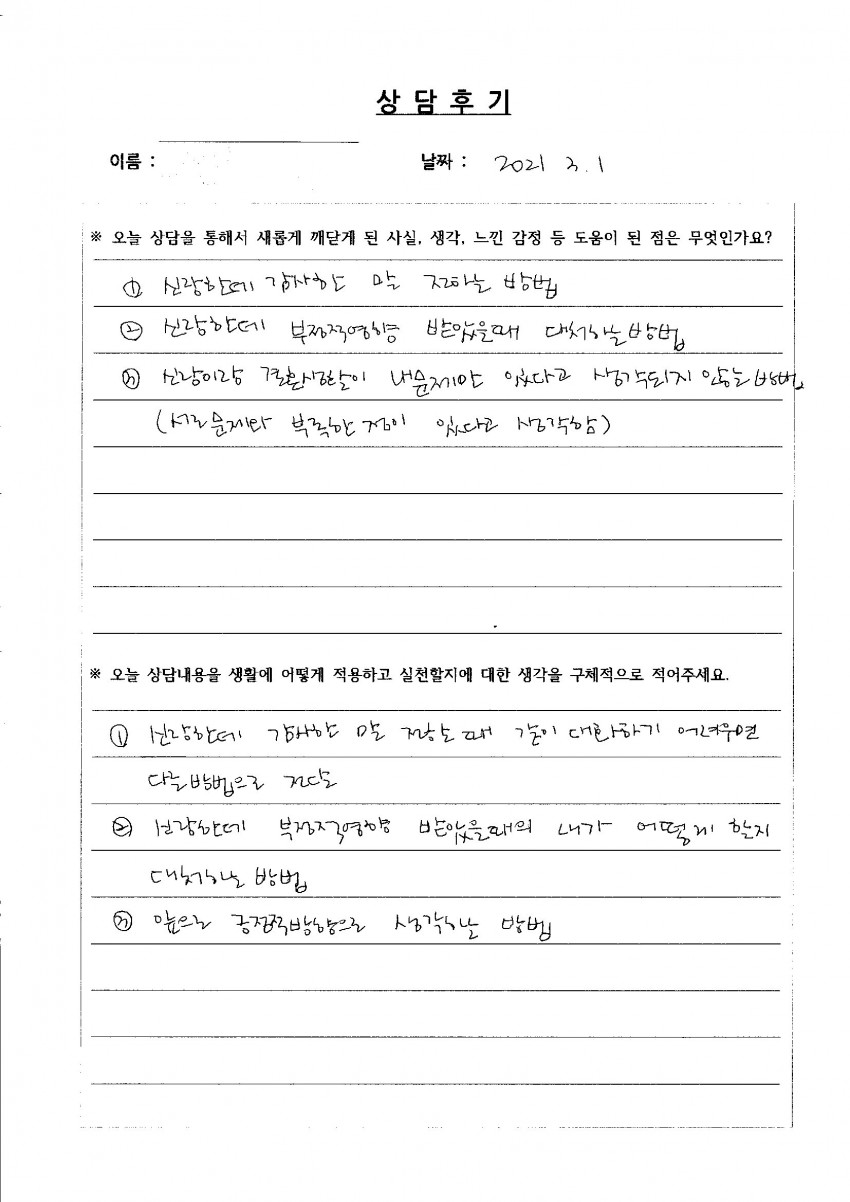 상 담 후 기
이름 :
날짜 : 2021 3. 1
※ 오늘 상담을 통해서 새롭게 깨닫게 된 사실, 생각, 느낀 감정 등 도움이 된 점은 무엇인가요?
① 신랑한테 감사한 말 전하는 방법
② 신랑한테 부정적영향 받았을때 대처하는방법
③ 신랑이랑 결혼생활이 내문제만 있다고 생각되지 않는방법
(서로문제다 부족한점이 있다고 생각함)
※ 오늘 상담내용을 생활에 어떻게 적용하고 실천할지에 대한 생각을 구체적으로 적어주세요.
① 신랑한테 감사한 말 전할 때 같이 대화하기 어려우면
다른방법으로 전달
② 신랑한테 부정적영향 받았을때의 내가 어떻게 할지
대처하는 방법
③ 앞으로 긍정적방향으로 생각하는 방법